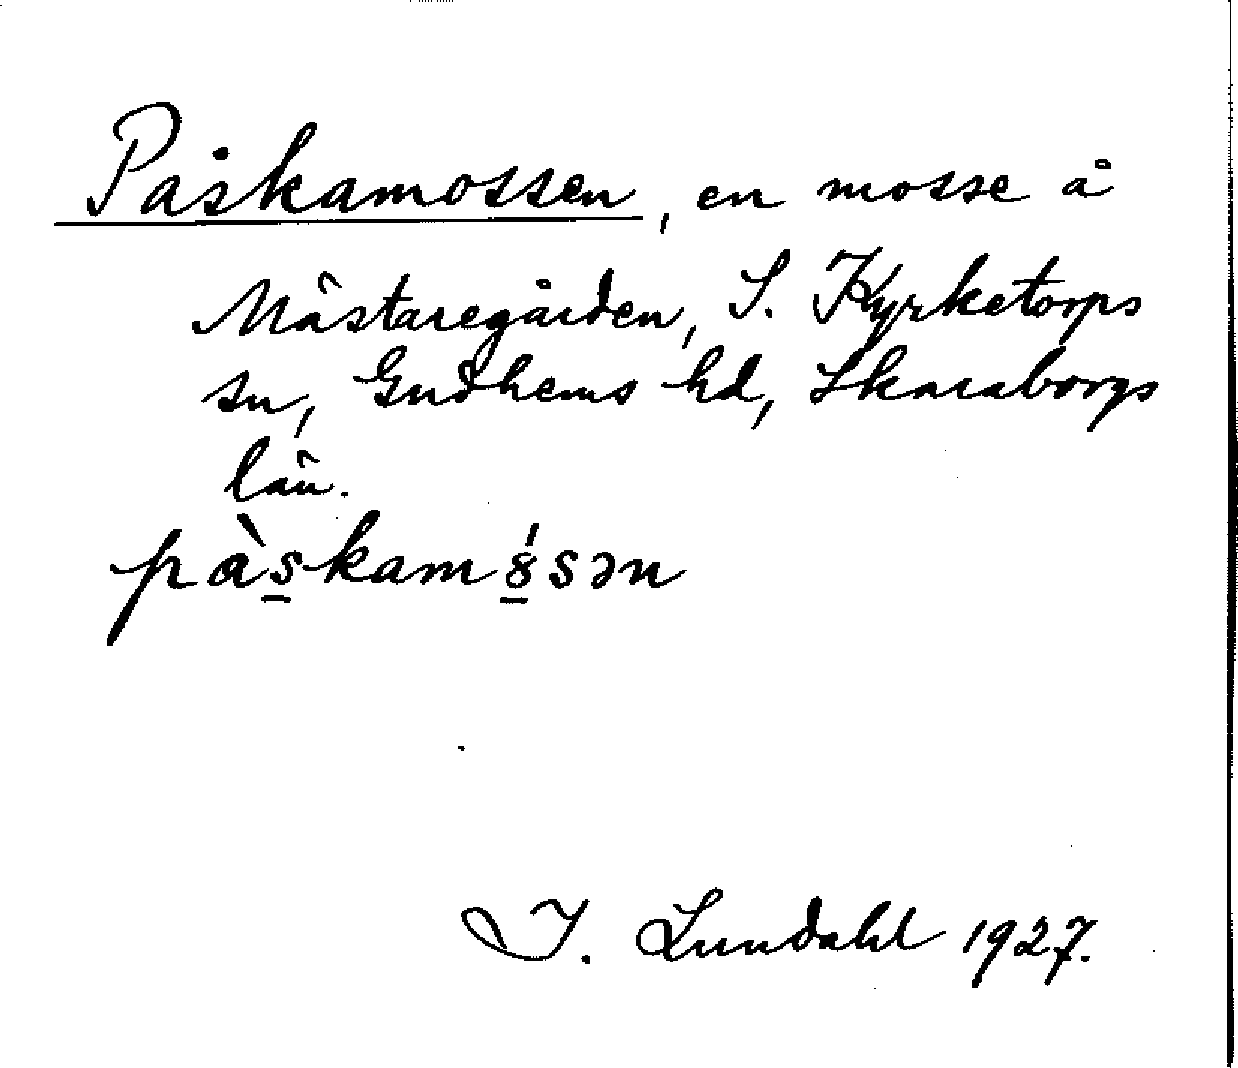 Påskamossen, en mosse å
Mästaregården, S. Kyrketorps
sn, Gudhems hd, Skaraborgs
län.
pàskam8́sən
I. Lundahl 1927.